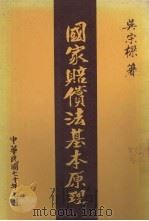 吳宗樑 著
國家賠償法基本原理
中華民國七十年